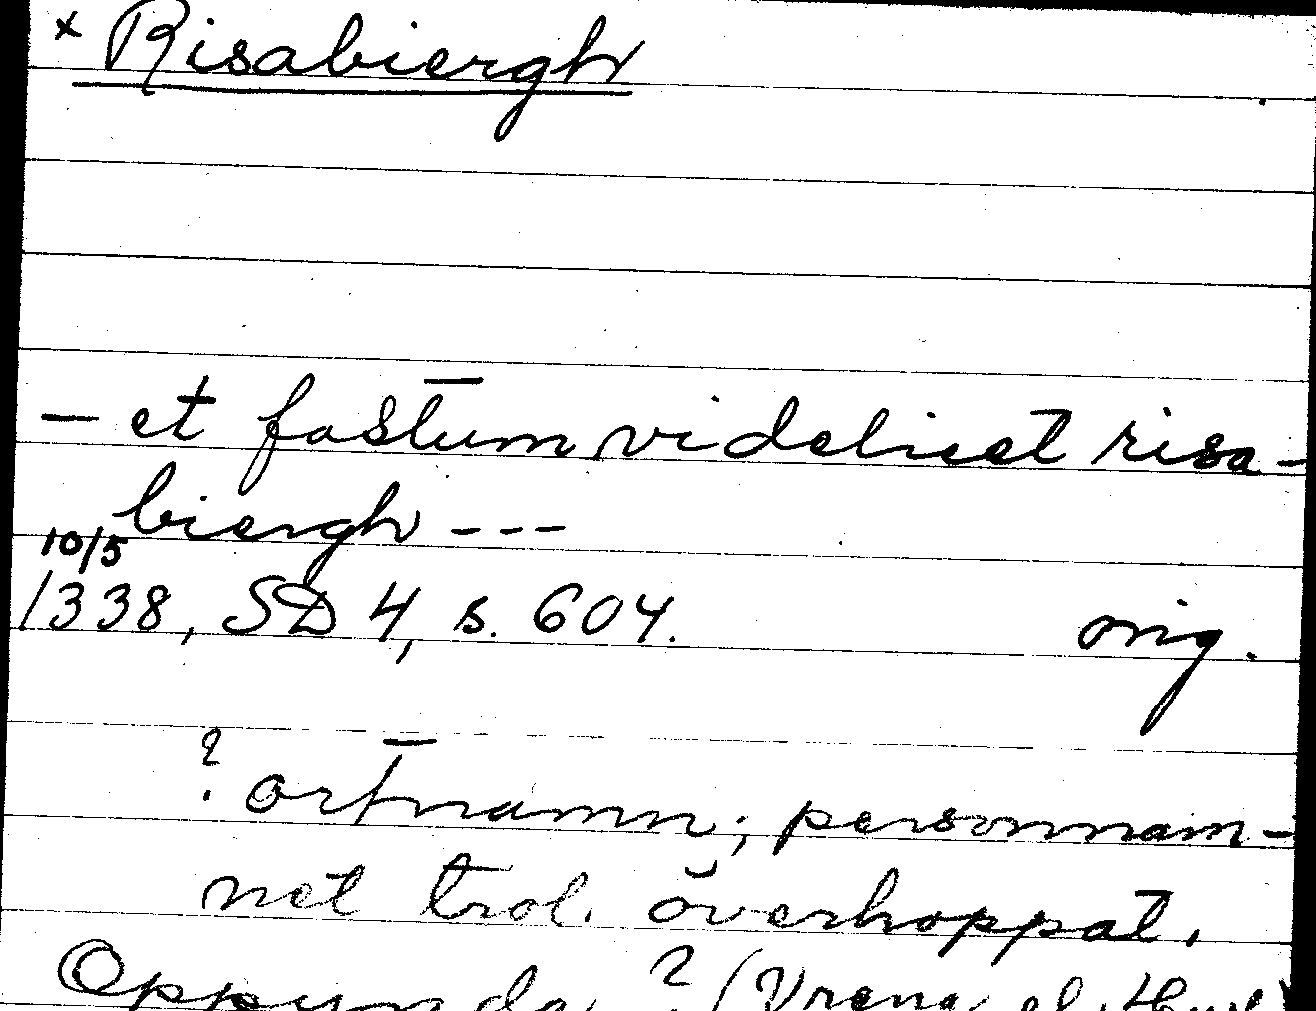 x Risabiergh
- et fastum videlicet risa-
biergh ---
10/5
1338, SD 4, s. 604. orig.
? ortnamn; personnam-
net trol. överhoppat.
Oppunda ? (Vrena el.